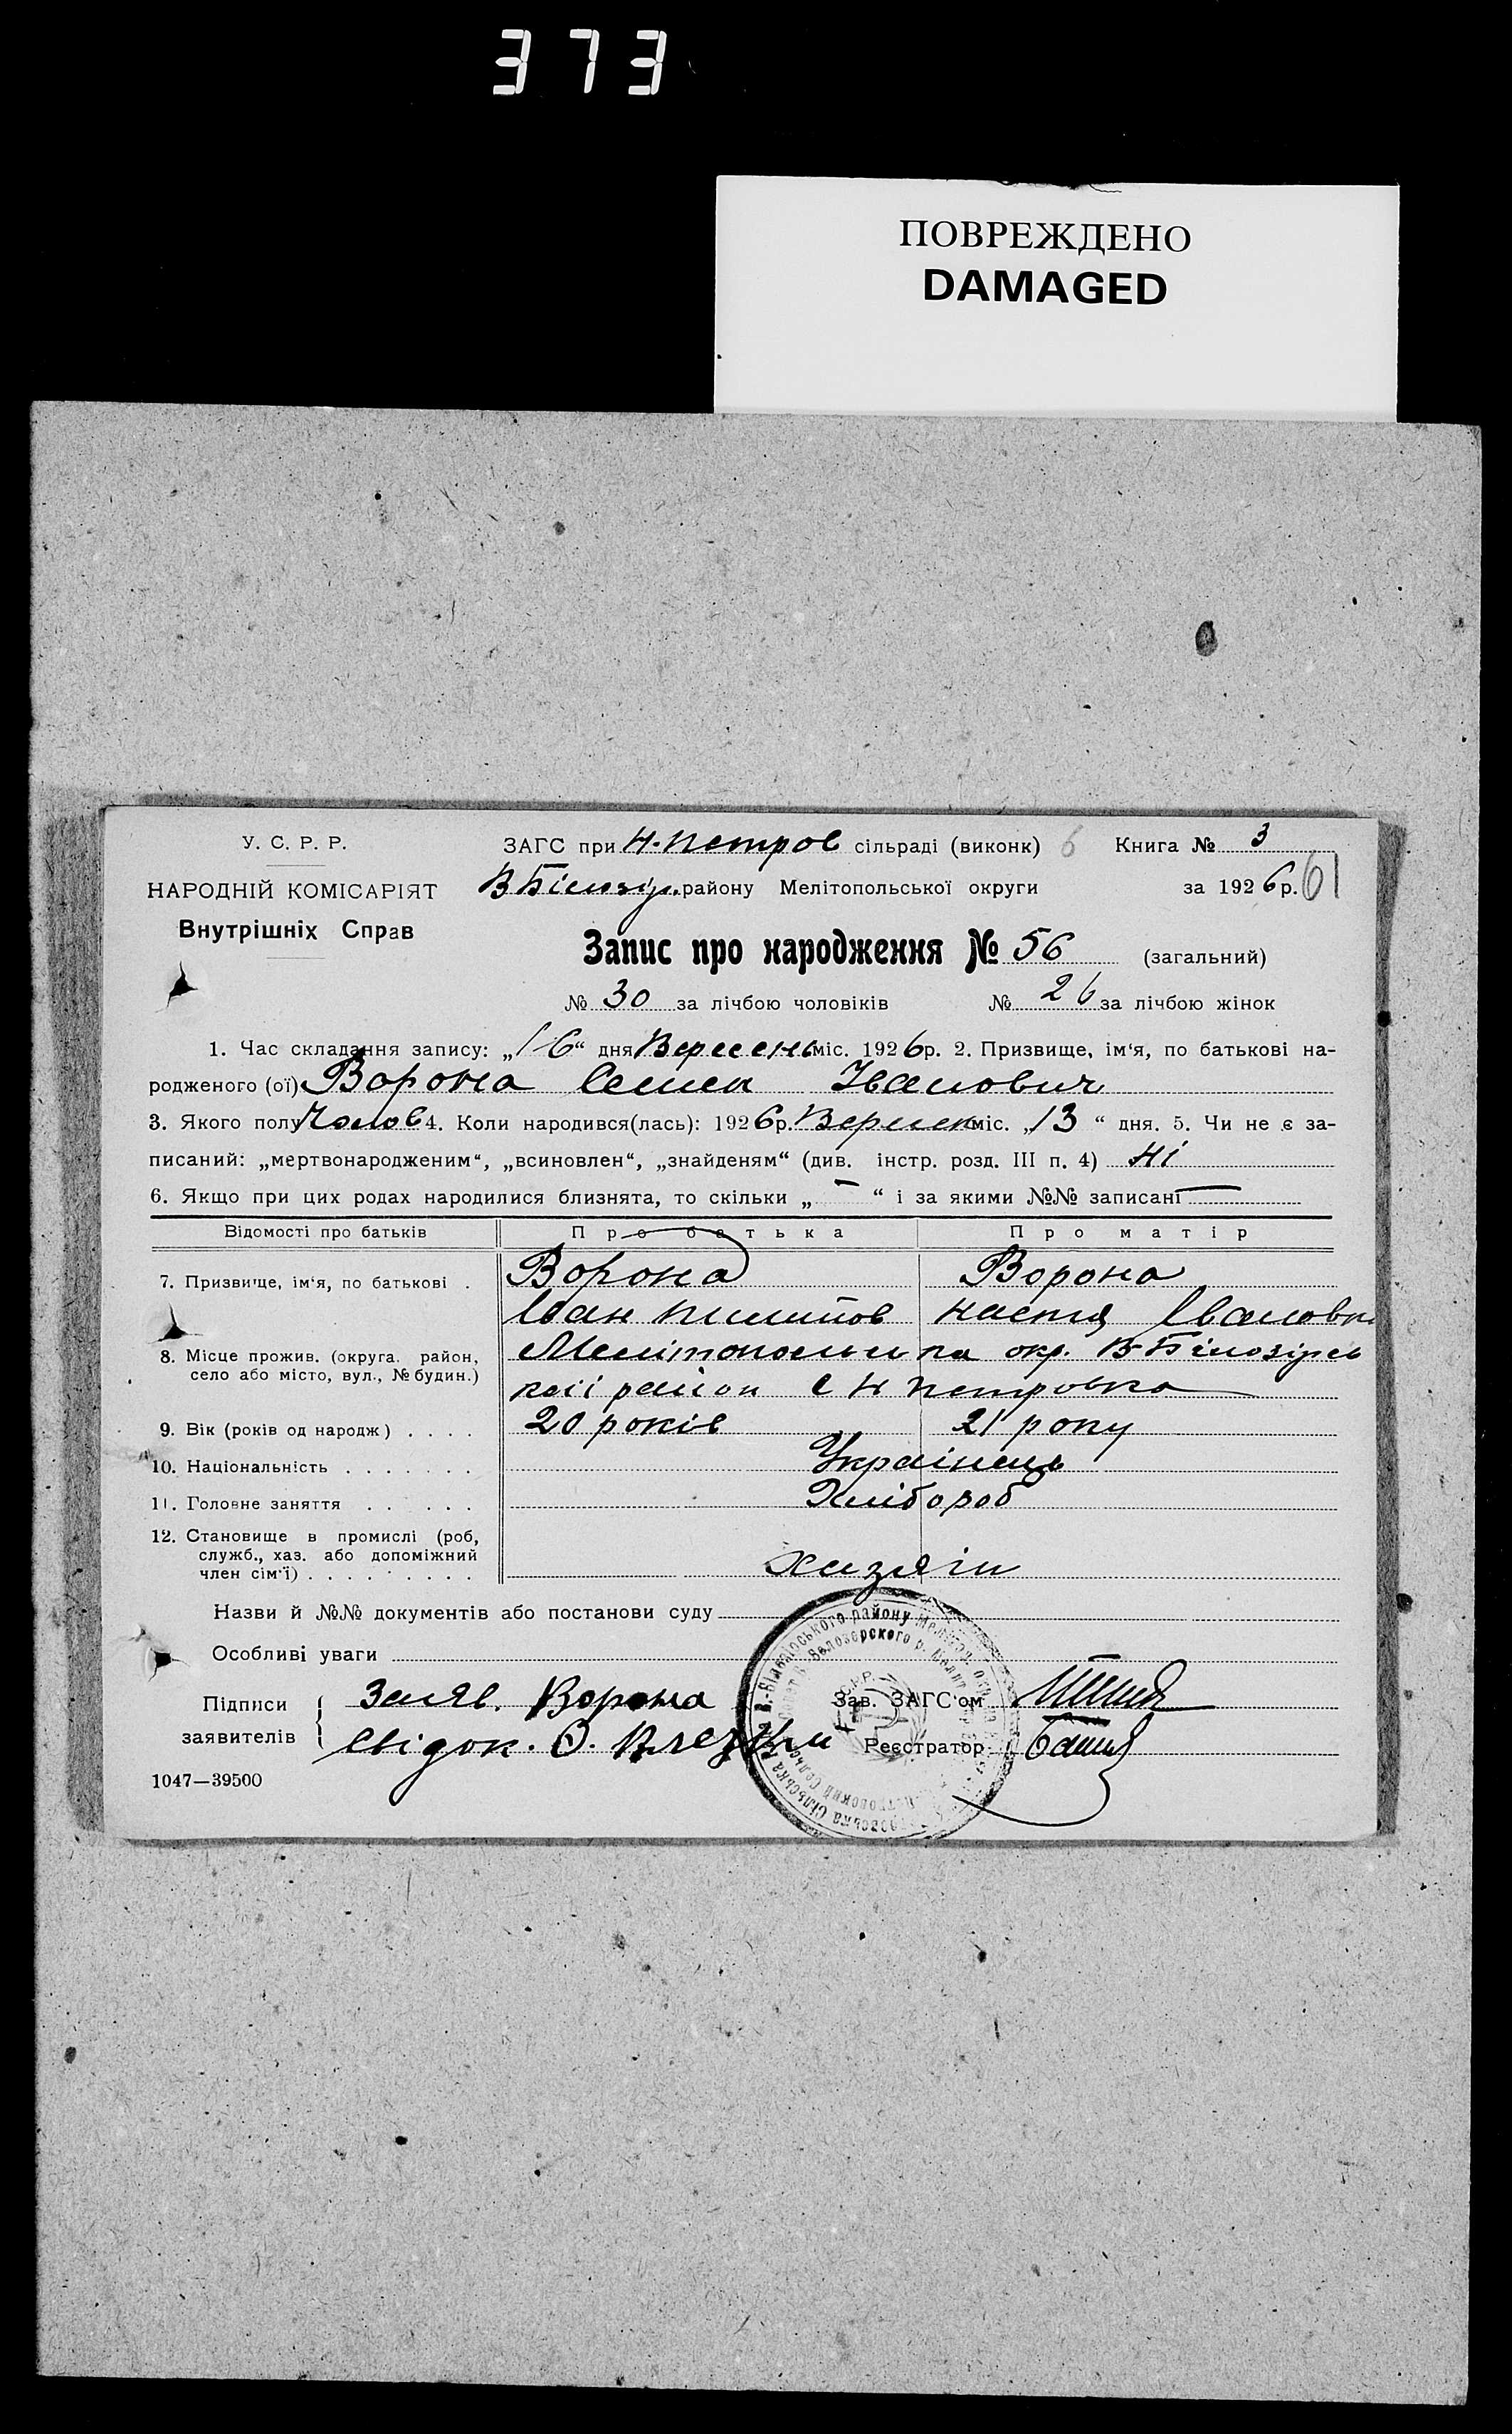 373
ПОВРЕЖДЕНО
DAMAGED
У. С. Р. Р.
НАРОДНІЙ КОМІСАРІЯТ
Внутрішніх Справ
ЗАГС при Н. Петров сільраді (виконк) 6 Книга № 3
В Білозір. району Мелітопольської округи за 1926 р. 61
Запис про народження № 56 (загальний)
№ 30 за лічбою чоловіків № 26 за лічбою жінок
1. Час складання запису: „16“ дня Вересень міс. 1926 р. 2. Призвище, ім‘я, по батькові на-
родженого (ої) Ворона Іванович
3. Якого полу Чолов 4. Коли народився(лась): 1926 р. Вересен міс. „13“ дня. 5. Чи не є за-
писаний: „мертвонародженим“, „всиновлен“, „знайденям“ (див. інстр. розд. III п. 4) Ні
6. Якщо при цих родах народилися близнята, то скільки „ — “ і за якими №№ записані —
Відомості про батьків Про батька Про матір
7. Призвище, ім‘я, по батькові . Ворона Ворона
Іван Пилипов Настя Івановна
8. Місце прожив. (округа, район, село або місто, вул., № будин.) Мелітопольська окр. В Білозірсь
кий район с Н Петровка
9. Вік (років од народж) . . . . 20 років 21 року
10. Національність . . . . . . . Українець
11. Головне заняття . . . . . . Хлібороб
12. Становище в промислі (роб,
служб., хаз. або допоміжний
член сім‘ї) . . . . . . . . . хазяїн
Назви й №№ документів або постанови суду
Особливі уваги
Підписи заявителів
Заяв. Ворона
Свідок. О.
Зав. ЗАГС‘ом
Реєстратор
1047—39500